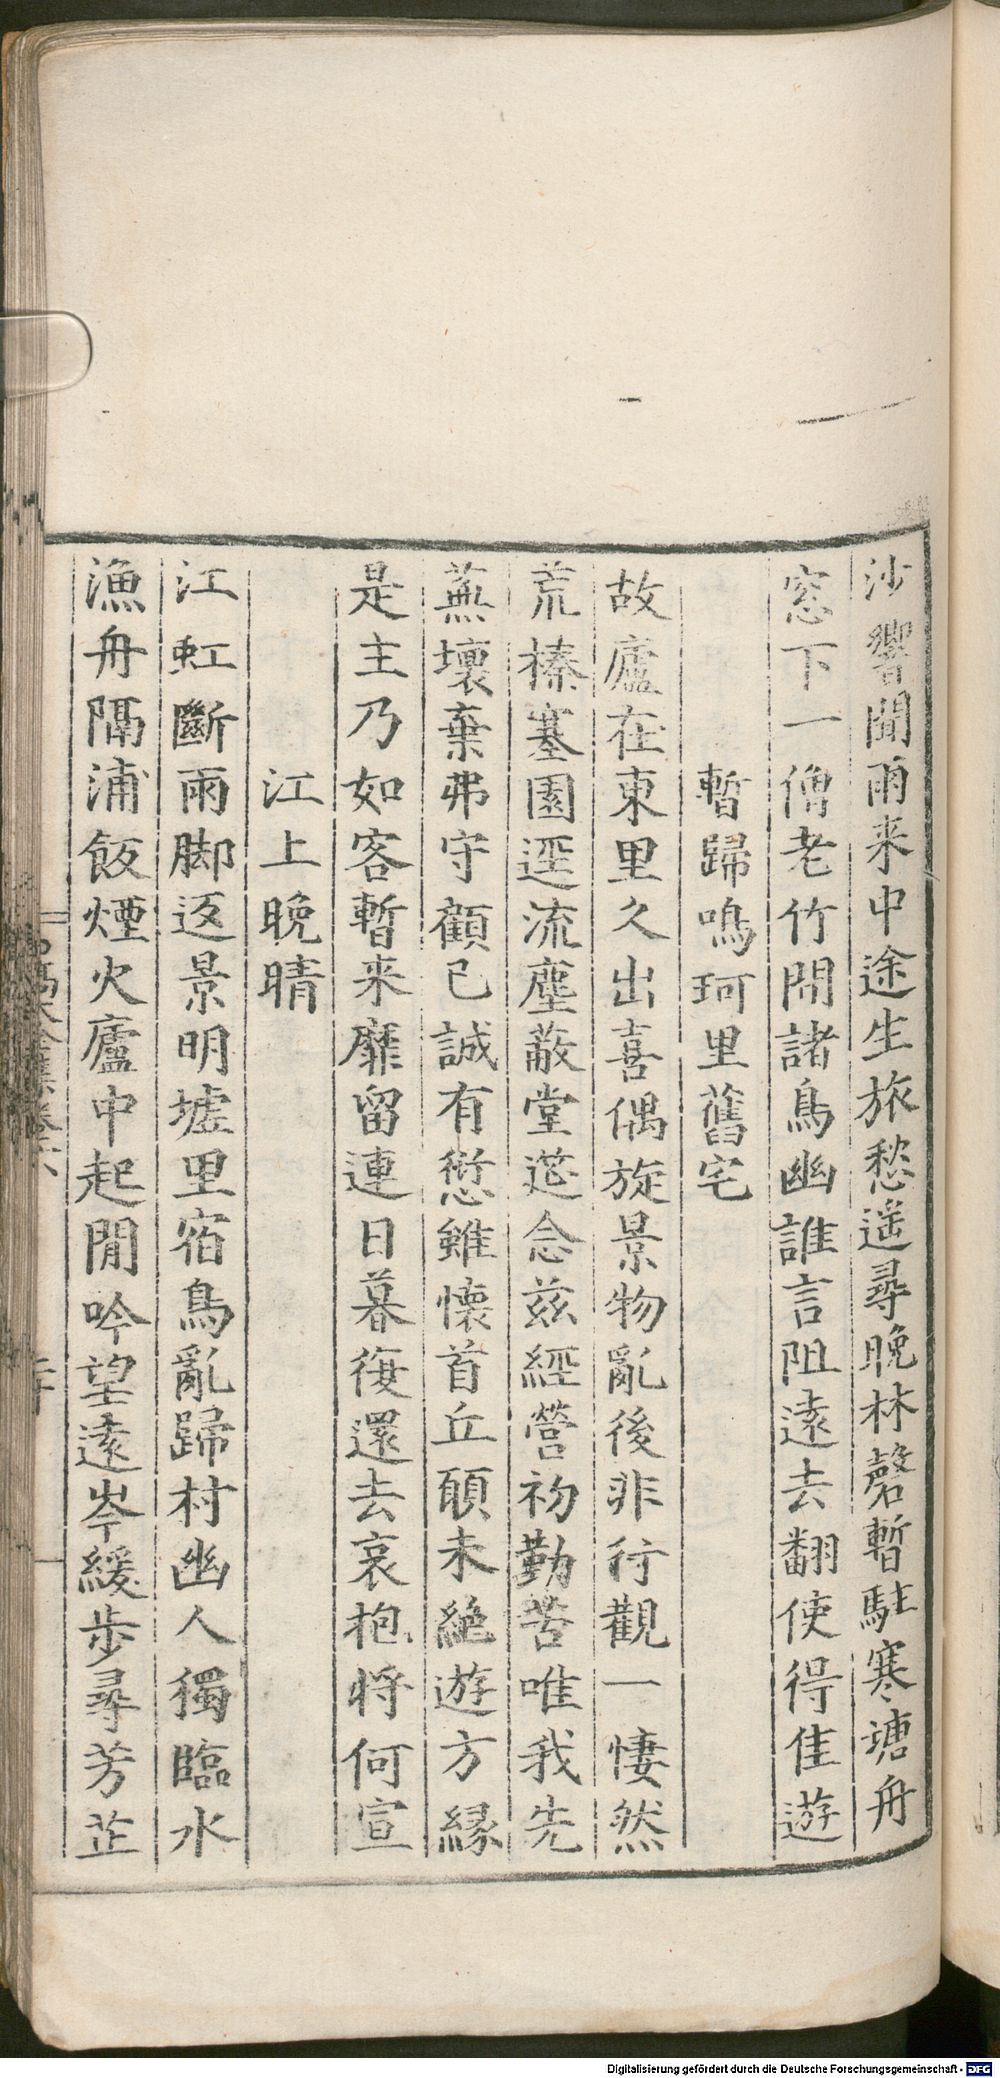 沙響聞雨来中途生旅愁遥尋晚林磬暫駐寒塘舟
窓下一僧老竹閒諸鳥幽誰言阻遠去翻使得佳遊
暫歸鳴珂里舊宅
故廬在東里久出喜偶旋景物亂後非行觀一悽然
荒榛塞園逕流塵蔽堂莚念兹經營初勤苦唯我先
蕪壞棄弗守顧已誠有愆雖懷首丘願未絶遊方縁
是主乃如客暫来靡留連日暮復還去哀抱将何宣
江上晚晴
江虹斷雨脚返景明墟里宿鳥亂歸村幽人獨臨水
漁舟隔浦飯煙火廬中起閒吟望遠岑緩步尋芳芷
Digitalisierung gefördert durch die Deutsche Forschungsgemeinschaft - DFG